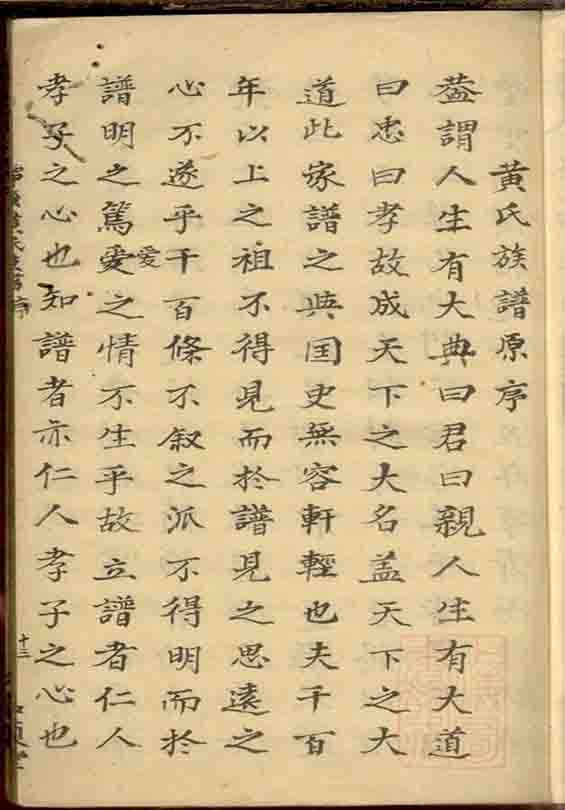 黃氏族譜原序
葢謂人生有大典曰君曰親人生有大道
曰忠曰孝故成天下之大名盖天下之大
道此家譜之與国史無容軒輕也夫千百
年以上之祖不得見而於譜見之思遠之
心不遂乎千百條不叙之派不得明而於
譜明之篤愛愛之情不生乎故立譜者仁人
孝子之心也知譜者亦仁人孝子之心也
十三